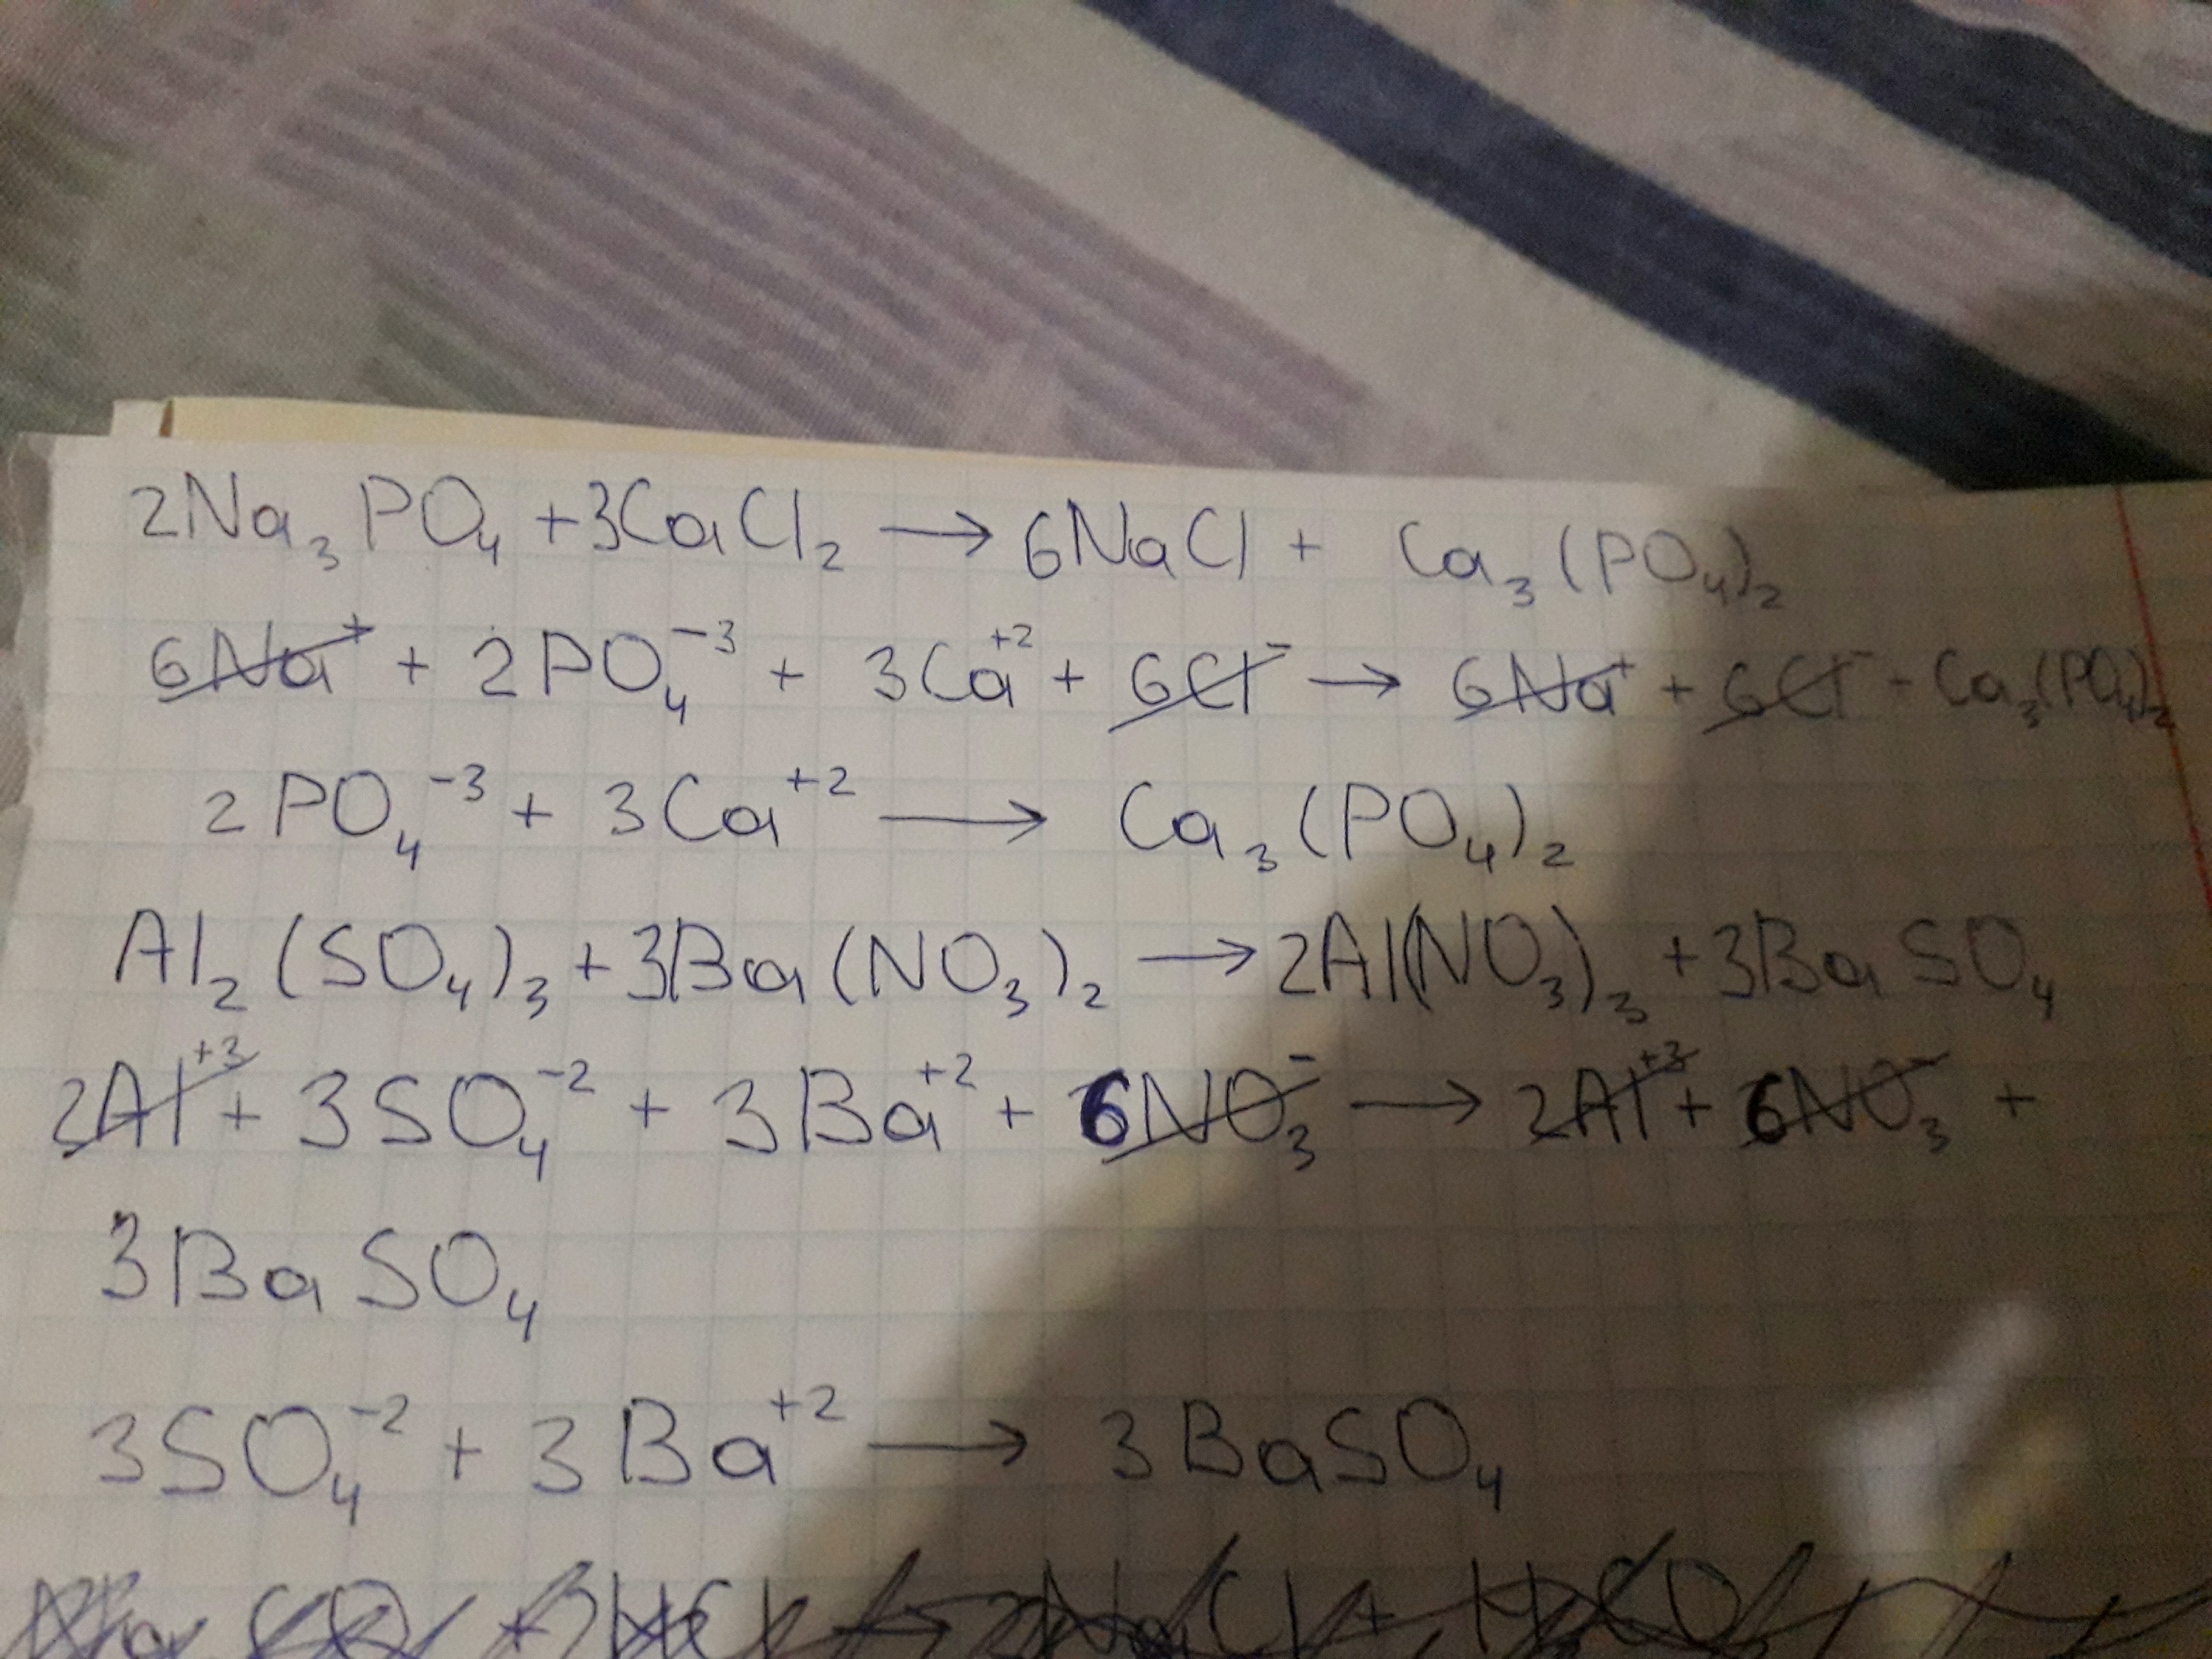 2Na₃PO₄ + 3CaCl₂ → 6NaCl + Ca₃(PO₄)₂
6Na⁺ + 2PO₄⁻³ + 3Ca⁺² + 6Cl⁻ → 6Na⁺ + 6Cl⁻ - Ca₃(PO₄)₂
2PO₄⁻³ + 3Ca⁺² → Ca₃(PO₄)₂
Al₂(SO₄)₃ + 3Ba(NO₃)₂ → 2Al(NO₃)₃ + 3BaSO₄
2Al⁺³ + 3SO₄⁻² + 3Ba⁺² + 6NO₃⁻ → 2Al⁺³ + 6NO₃⁻ +
3BaSO₄
3SO₄⁻² + 3Ba⁺² → 3BaSO₄